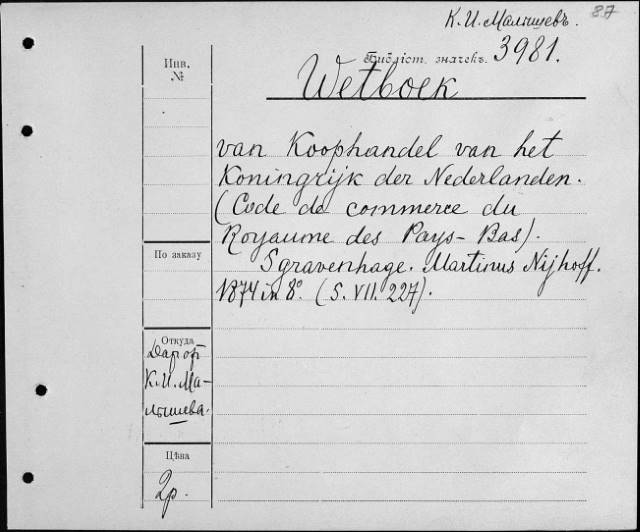 К. И. Малышевъ. 87
Библіот. значекъ. 3981.
Wetboek
van Koophandel van het
Koningrijk der Nederlanden.
(Code de commerce du
Royaume des Pays-Bas).
Sgravenhage. Martinus Nijhoff.
1874 in 8°. (S. VII. 227).
Инв.
№
По заказу
Откуда
Даръ отъ
К. И. Ма-
лышева.
Цѣна
2р.